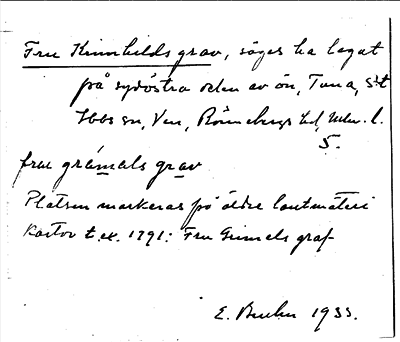 Fru Krimhilds grav, säges ha legat
på sydöstra delen av ön, Tuna, S:t
Ibbs sn, Ven, Rönnebergs hd, Malm. l.
5.
frue grámals grav
Platsen markeras på äldre lantmäteri
kartor t. ex. 1791: Fru Grimels graf
E. 1933.